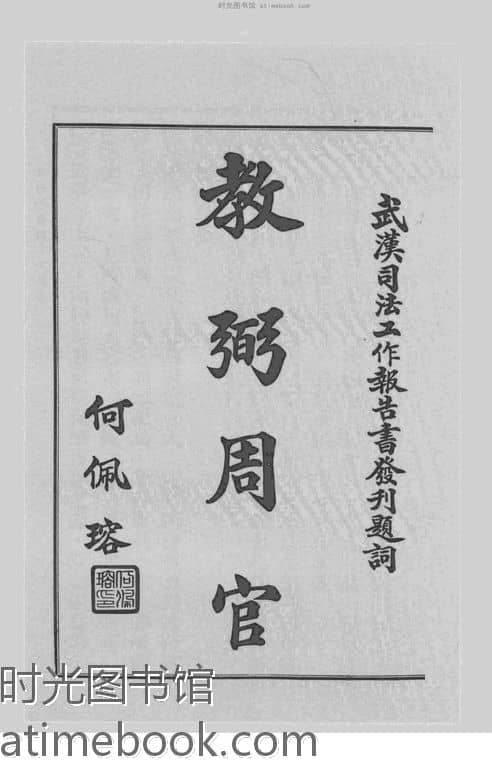 时光图书馆 atimebook.com
武漢司法工作報告書發刊題詞
教弼周官
何佩瑢
何佩瑢印
时光图书馆
atimebook.com